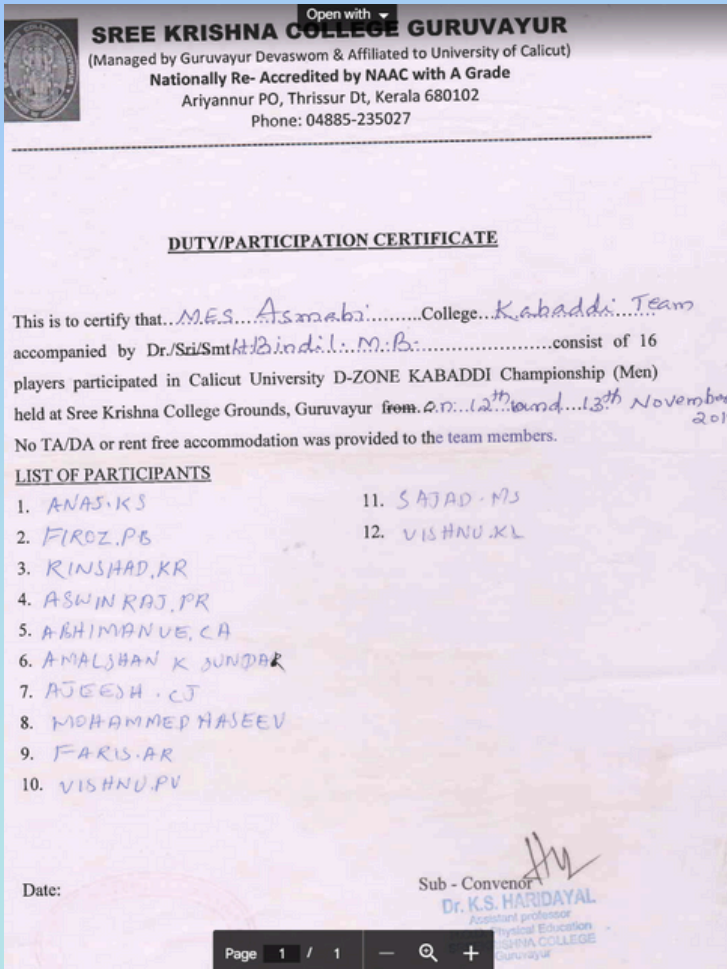 Open with
SREE KRISHNA COLLEGE GURUVAYUR
(Managed by Guruvayur Devaswom & Affiliated to University of Calicut)
Nationally Re- Accredited by NAAC with A Grade
Ariyannur PO, Thrissur Dt, Kerala 680102
Phone: 04885-235027
DUTY/PARTICIPATION CERTIFICATE
This is to certify that..MES Asmabi........College...Kabaddi Team
accompanied by Dr./Sri/Smt Bindil. M.B. ..................consist of 16
players participated in Calicut University D-ZONE KABADDI Championship (Men)
held at Sree Krishna College Grounds, Guruvayur from on 12th and 13th November
201
No TA/DA or rent free accommodation was provided to the team members.
LIST OF PARTICIPANTS
1. ANAS.KS
2. FIROZ.PB
3. RINSHAD.KR
4. ASWIN RAJ.PR
5. ABHIMANUE.CA
6. AMALSHAN K SUNDAR
7. AJEESH.CJ
8. MOHAMMED HASEEV
9. FARIS.AR
10. VISHNU.PV
11. SAJAD.MS
12. VISHNU.KL
Date:
Sub - Convenor
Dr. K.S. HARIDAYAL
Assistant professor
Physical Education
SHNA COLLEGE
Guruvayur
Page 1 / 1